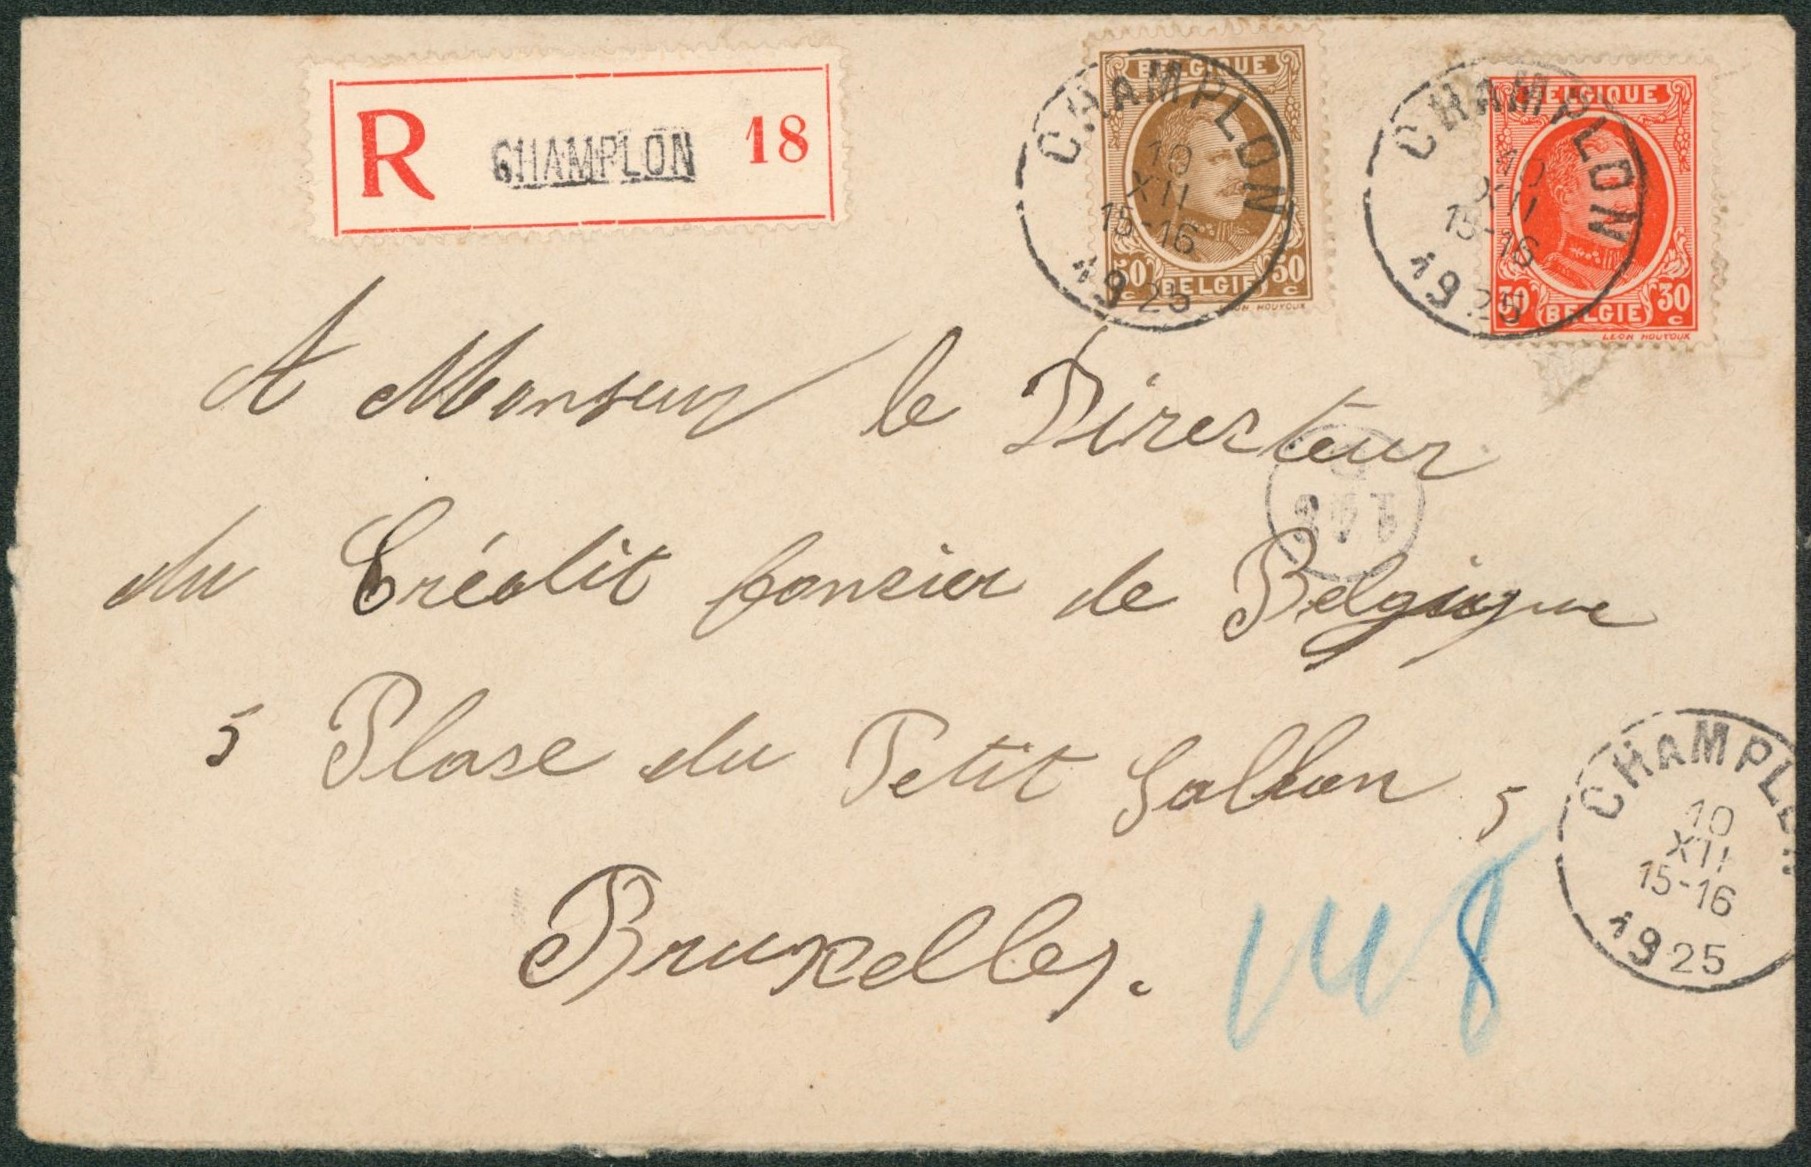 R CHAMPLON 18
BELGIQUE
50 c BELGIE 50 c
LEON HOUYOUX
CHAMPLON
10
XII
15-16
1925
BELGIQUE
30 BELGIE 30 c
LEON HOUYOUX
CHAMPLON
10
XII
15-16
1925
A Monsieur le Directeur
148
du Crédit fonsier de Belgique
5 Plase du Petit Sablon 5
Bruxelles.
148
CHAMPLON
10
XII
15-16
1925